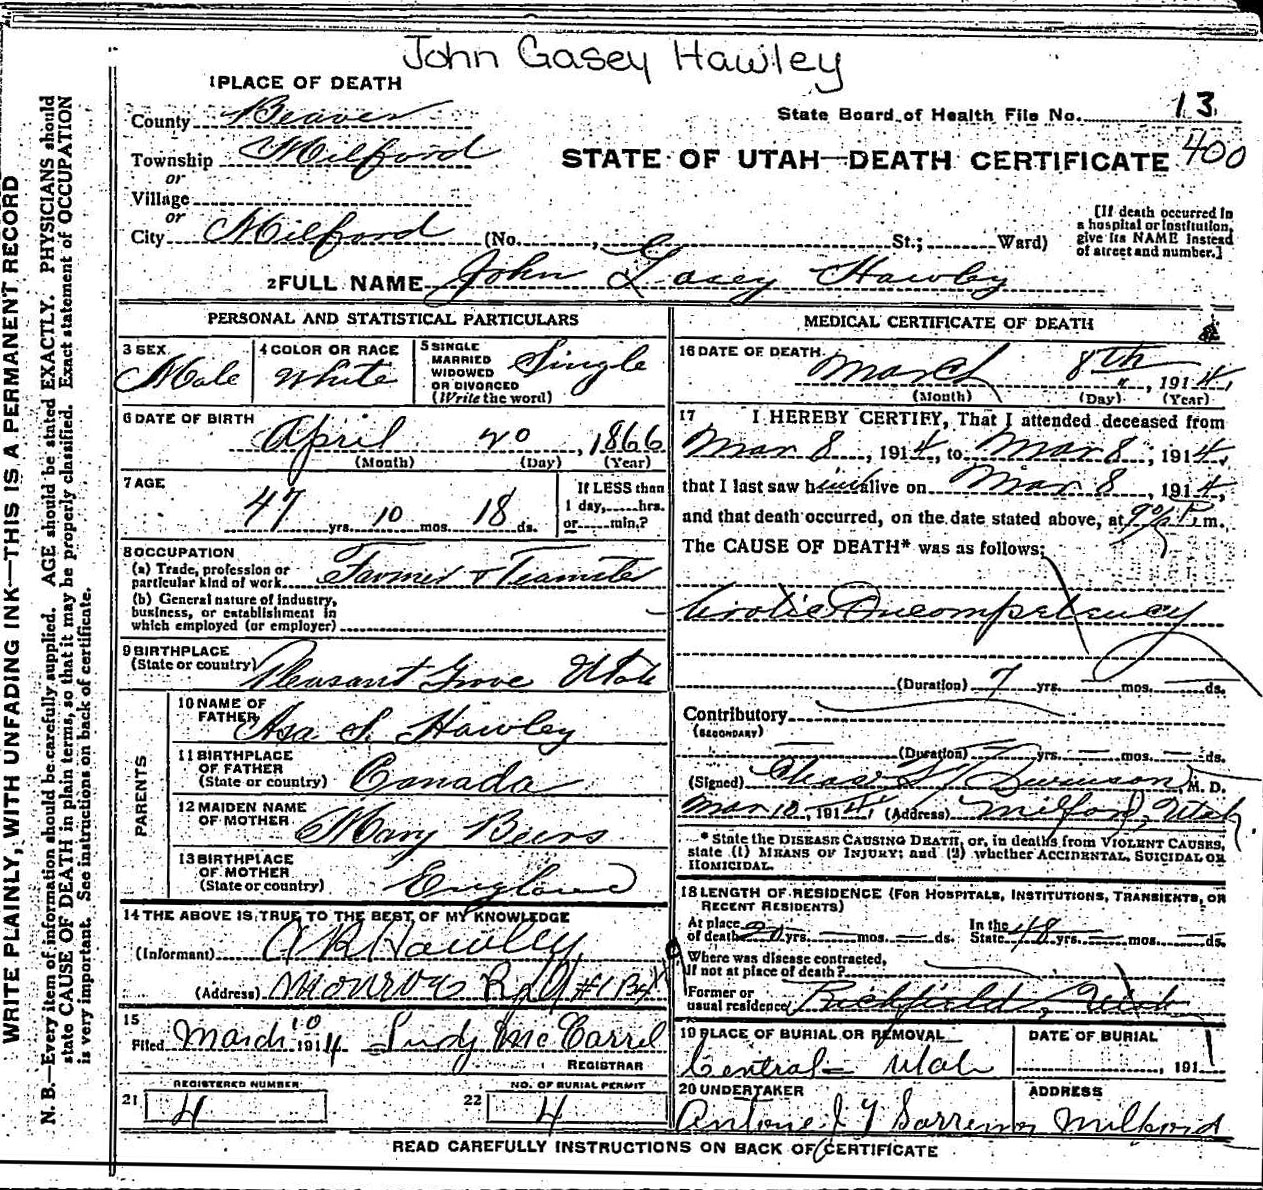 John Gasey Hawley
1 PLACE OF DEATH
County Beaver
State Board of Health File No. 13
Township Milford
STATE OF UTAH—DEATH CERTIFICATE 400
or
Village
or
City Milford (No. , St.; Ward)
[If death occurred in a hospital or institution, give its NAME instead of street and number.]
2 FULL NAME John Gasey Hawley
PERSONAL AND STATISTICAL PARTICULARS
3 SEX Male
4 COLOR OR RACE White
5 SINGLE MARRIED WIDOWED OR DIVORCED (Write the word) Single
6 DATE OF BIRTH April 20, 1866
(Month) (Day) (Year)
7 AGE 47 yrs. 10 mos. 18 ds.
If LESS than 1 day, hrs. or min.?
8 OCCUPATION
(a) Trade, profession or particular kind of work Farmer & Teamster
(b) General nature of industry, business, or establishment in which employed (or employer)
9 BIRTHPLACE
(State or country) Pleasant Grove Utah
PARENTS
10 NAME OF FATHER Asa S. Hawley
11 BIRTHPLACE OF FATHER (State or country) Canada
12 MAIDEN NAME OF MOTHER Mary Beers
13 BIRTHPLACE OF MOTHER (State or country) England
14 THE ABOVE IS TRUE TO THE BEST OF MY KNOWLEDGE
(Informant) Hawley
(Address) Monroe #1
15
Filed March 10 1914 McCarrel
REGISTRAR
REGISTERED NUMBER
21 4
NO. OF BURIAL PERMIT
22 4
MEDICAL CERTIFICATE OF DEATH
16 DATE OF DEATH March 8th, 1914,
(Month) (Day) (Year)
17 I HEREBY CERTIFY, That I attended deceased from
Mar 8, 1914, to Mar 8, 1914,
that I last saw him alive on Mar 8, 1914,
and that death occurred, on the date stated above, at P. m.
The CAUSE OF DEATH* was as follows:
Incompetency
(Duration) 7 yrs. mos. ds.
Contributory
(SECONDARY)
(Duration) yrs. mos. ds.
(Signed) Chas. M. D.
Mar 10, 1914 (Address) Milford, Utah.
* State the DISEASE CAUSING DEATH, or, in deaths from VIOLENT CAUSES, state (1) MEANS OF INJURY; and (2) whether ACCIDENTAL, SUICIDAL OR HOMICIDAL.
18 LENGTH OF RESIDENCE (FOR HOSPITALS, INSTITUTIONS, TRANSIENTS, OR RECENT RESIDENTS)
At place of death yrs. mos. ds. In the State 48 yrs. mos. ds.
Where was disease contracted, If not at place of death?
Former or usual residence Richfield, Utah
19 PLACE OF BURIAL OR REMOVAL
Central Utah
DATE OF BURIAL
, 191
20 UNDERTAKER
Antone
ADDRESS
Milford
READ CAREFULLY INSTRUCTIONS ON BACK OF CERTIFICATE
WRITE PLAINLY, WITH UNFADING INK—THIS IS A PERMANENT RECORD
N. B.—Every item of information should be carefully supplied. AGE should be stated EXACTLY. PHYSICIANS should
state CAUSE OF DEATH in plain terms, so that it may be properly classified. Exact statement of OCCUPATION
is very important. See instructions on back of certificate.